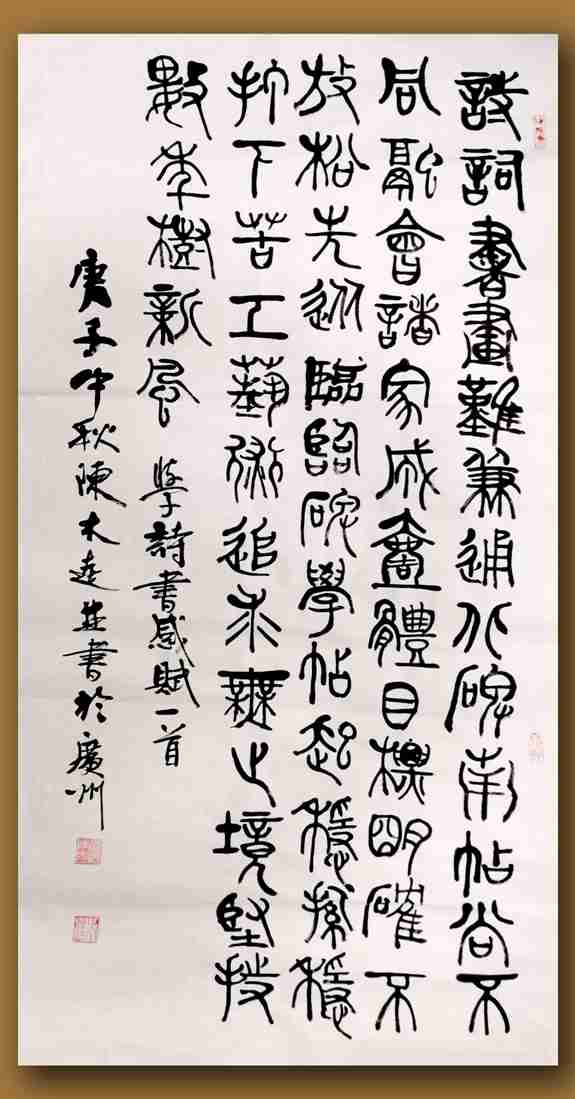 詩詞書畫難兼通北碑南帖尚不
同融會諸家成壹體目標明確不
放松先從臨碑學帖起穩紮穩
打下苦工藝術追求無止境堅持
數年樹新風 學詩書感賦一首
庚子中秋陳木達並書於廣州